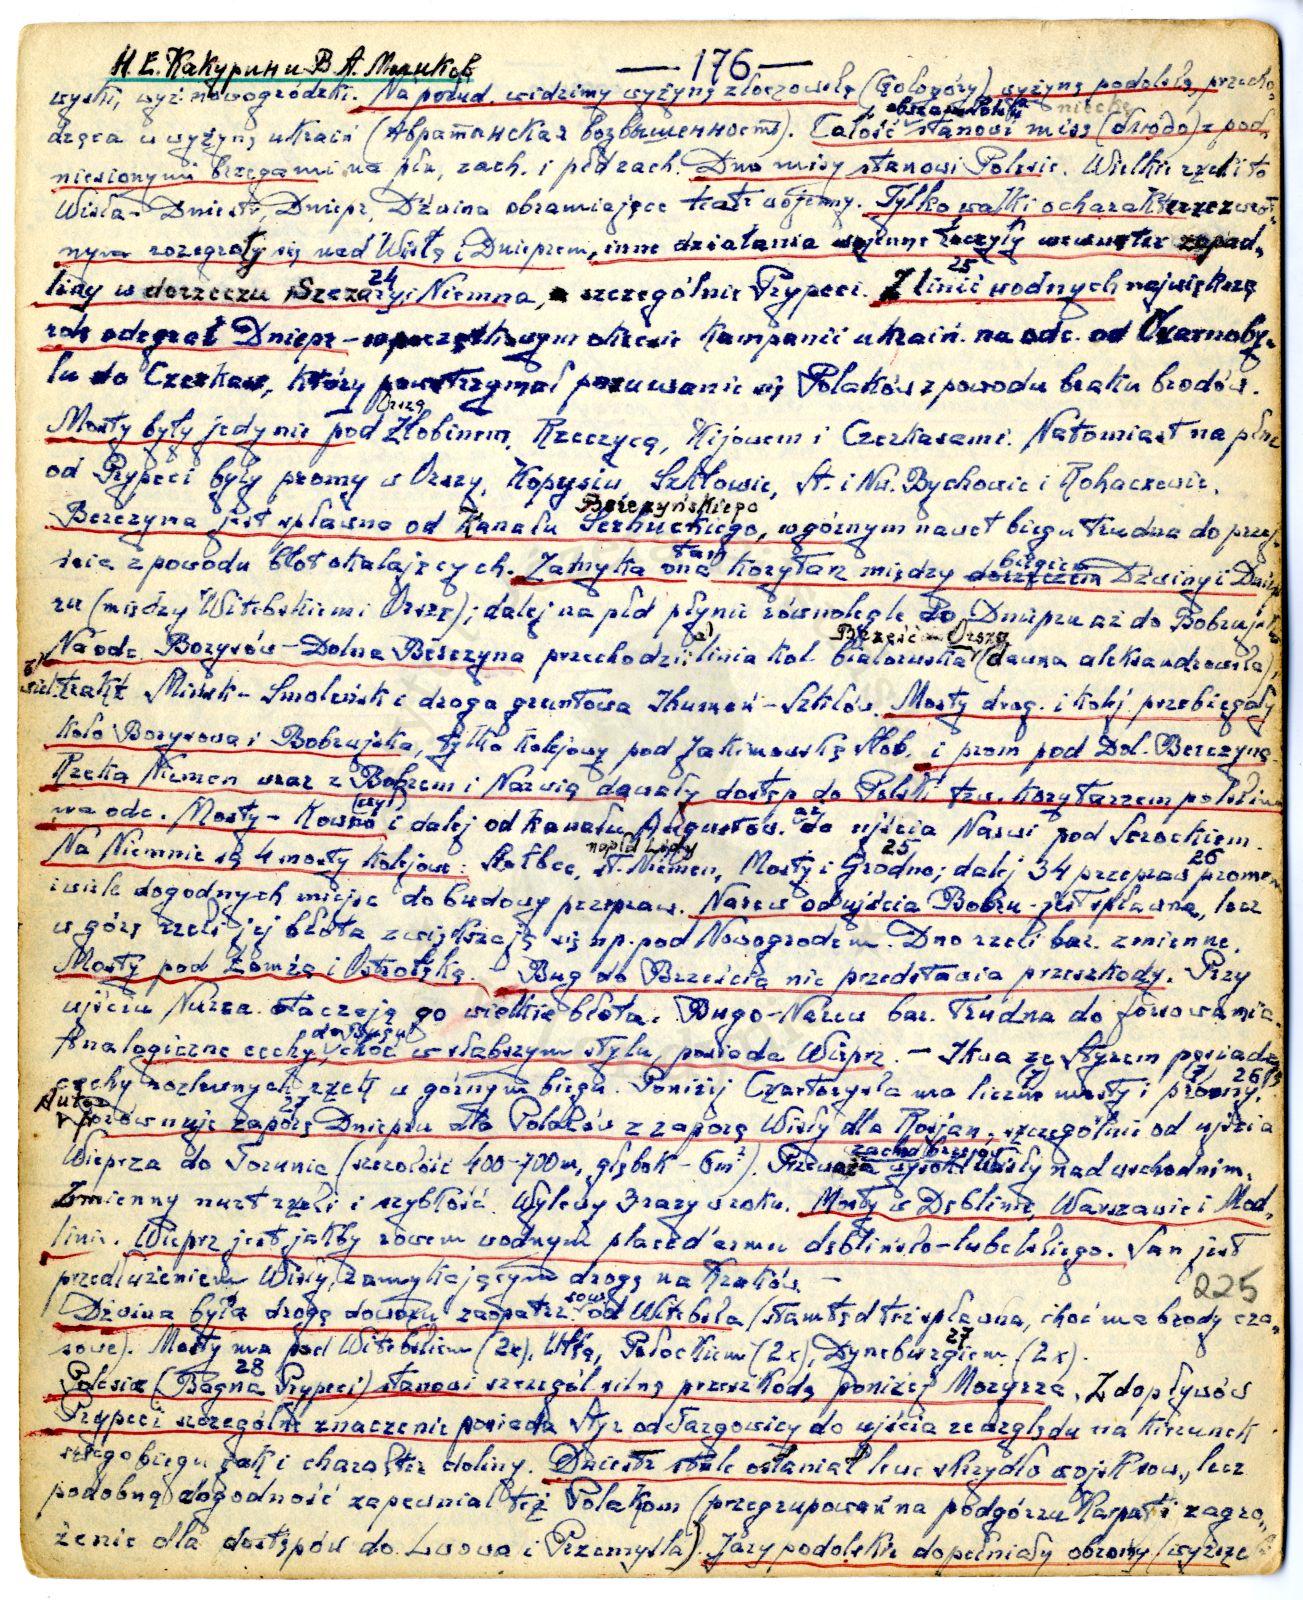 Н Е. Какурин и В А. Меликов — 176 —
wyski, wyż. nowogródzki. Na połud. widzimy wyżynę złoczowską (Gołogóry), wyżynę podolską, przecho-
dzącą w wyżynę ukraiń (Авратынская возвышенность). Całość obszaru Polska stanowi misę nieckę (dwodo) z pod-
niesionymi brzegami na płn, zach. i płd zach. Dno misy stanowi Polesie. Wielkie rzeki to
Wisła – Dniestr, Dniepr, Dźwina obramiające teatr wojenny. Tylko walki o charakterze zwrot-
nym rozegrały się nad Wisłą i Dnieprem, inne działania wojenne toczyły wewnątrz zapad-
liny w dorzeczu Szczary 24 i Niemna, szczególnie Prypeci. Z linii 25 wodnych największą
rolę odegrał Dniepr – w początkowym okresie kampanii ukraiń. na odc. od Czarnoby-
lu do Czerkas, który powstrzymał posuwanie się Polaków z powodu braku brodów.
Mosty były jedynie pod Orszą Żłobinem, Rzeczycą, Kijowem i Czerkasami. Natomiast na płnc
od Prypeci były promy w Orszy, Kopysiu, Szkłowie, St. i Nw. Bychowie i Rohaczewie.
Berezyna jest spławna od Kanału Berezyńskiego Serhuckiego, w górnym nawet biegu trudna do przej-
ścia z powodu błot okalających. Zamyka ona tam korytarz między biegiem dorzeczem Dźwiny i Dniep
ru (między Witebskiem i Orszą); dalej na płd płynie równolegle do Dniepru aż do Bobrujska
Na odc. Borysów – Dolna Berezyna przechodzi: a) linia kol. białoruska Brześć – Orsza (dawna aleksandrowska),
wiel. trakt Mińsk – Smoleńsk i droga gruntowa Ihumeń – Szkłów. Mosty drog. i kolej. przebiegały
koło Borysowa i Bobrujska, tylko kolejowy pod Jakimowską Słob. i prom pod Dol. Berezyną.
Rzeka Niemen wraz z Bobrem i Narwią dawały dostęp do Polski tzw. korytarzem polskim
na odc. Mosty – Kowno i dalej od kanału Augustow. aż do ujścia Narwi pod Serockiem.
Na Niemnie są 4 mosty kolejowe: Stołbce, st. Niemen na płd Lidy, Mosty i Grodno; 25 dalej 34 przepraw promem 26
i wiele dogodnych miejsc do budowy przepraw. Narew od ujścia Bobru – jest spławna, lecz
w górę rzeki jej błota zwiększają się np. pod Nowogrodem. Dno rzeki bar. zmienne.
Mosty pod Łomżą i Ostrołęką. – Bug do Brześcia nie przedstawia przeszkody. Przy
ujściu Nurca otaczają go wielkie błota. Bugo-Narew bar. trudna do forsowania.
Analogiczne cechy do Bugu, choć w słabszym stylu, posiada Wieprz. – Ikwa ze Styrem posiada
cechy rozlewnych rzek w górnym biegu. Poniżej Czartoryska ma liczne mosty (7) i promy. (7) 26
Autor porównuje 27 zaporę Dniepru dla Polaków z zaporą Wisły dla Rosjan, szczególnie od ujścia
Wieprza do Torunia (szerokość 400–700 m, głębok – 6 m). Przewaga wysok. zachod. brzegów Wisły nad wschodnim.
Zmienny nurt rzeki i szybkość. Wylewy 3 razy w roku. Mosty w Dęblinie, Warszawie i Mod-
linie. Wieprz jest jakby rowem wodnym place d'armes dęblińsko-lubelskiego. San jest
przedłużeniem Wisły, zamykającym drogę na Kraków. –
225
Dźwina była drogą dowozu zaopatrz. sow. od Witebska (stamtąd też spławna, choć ma brody cza-
sowe). Mosty ma pod Witebskiem (2x), Ułłą, Połockiem (2x), Dyneburgiem 27 (2x).
Polesie (Bagna 28 Prypeci) stanowi szczegól. silną przeszkodę poniżej Mozyrza. Z dopływów
Prypeci szczególne znaczenie posiada Styr od Targowicy do ujścia ze względu na kierunek
swego biegu jak i charakter doliny. Dniestr stale osłaniał lewe skrzydło wojsk sow., lecz
podobną dogodność zapewniał też Polakom (przegrupowań na podgórzu Karpat i zagro-
żenie dla dostępów do Lwowa i Przemyśla). Jary podolskie dopełniały obrony